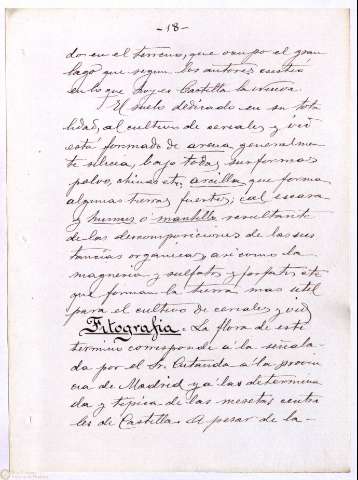 -18-
do en el terreno, que ocupo el gran
lago que segun los autores existia
en lo que hoy es Castilla la nueva.
El suelo dedicado en su tota
lidad, al cultivo de cereales y vid
está formado de arena generalmen
te silicea, bajo todas sus formas
polvo, chinas etc, arcilla que forma
algunas tierras fuertes, cal escasa
y humus o mantillo resultante
de las descomposiciones de las sus
tancias organicas, asi como la
magnesia y sulfatos y fosfatos etc
que forman la tierra mas util
para el cultivo de cereales y vid
Fitografia. La flora de este
termino corresponde á la señala-
da por el Sr. Cutanda á la provin
cia de Madrid y á las determina
da y tipica de las mesetas centra
les de Castilla. A pesar de la-